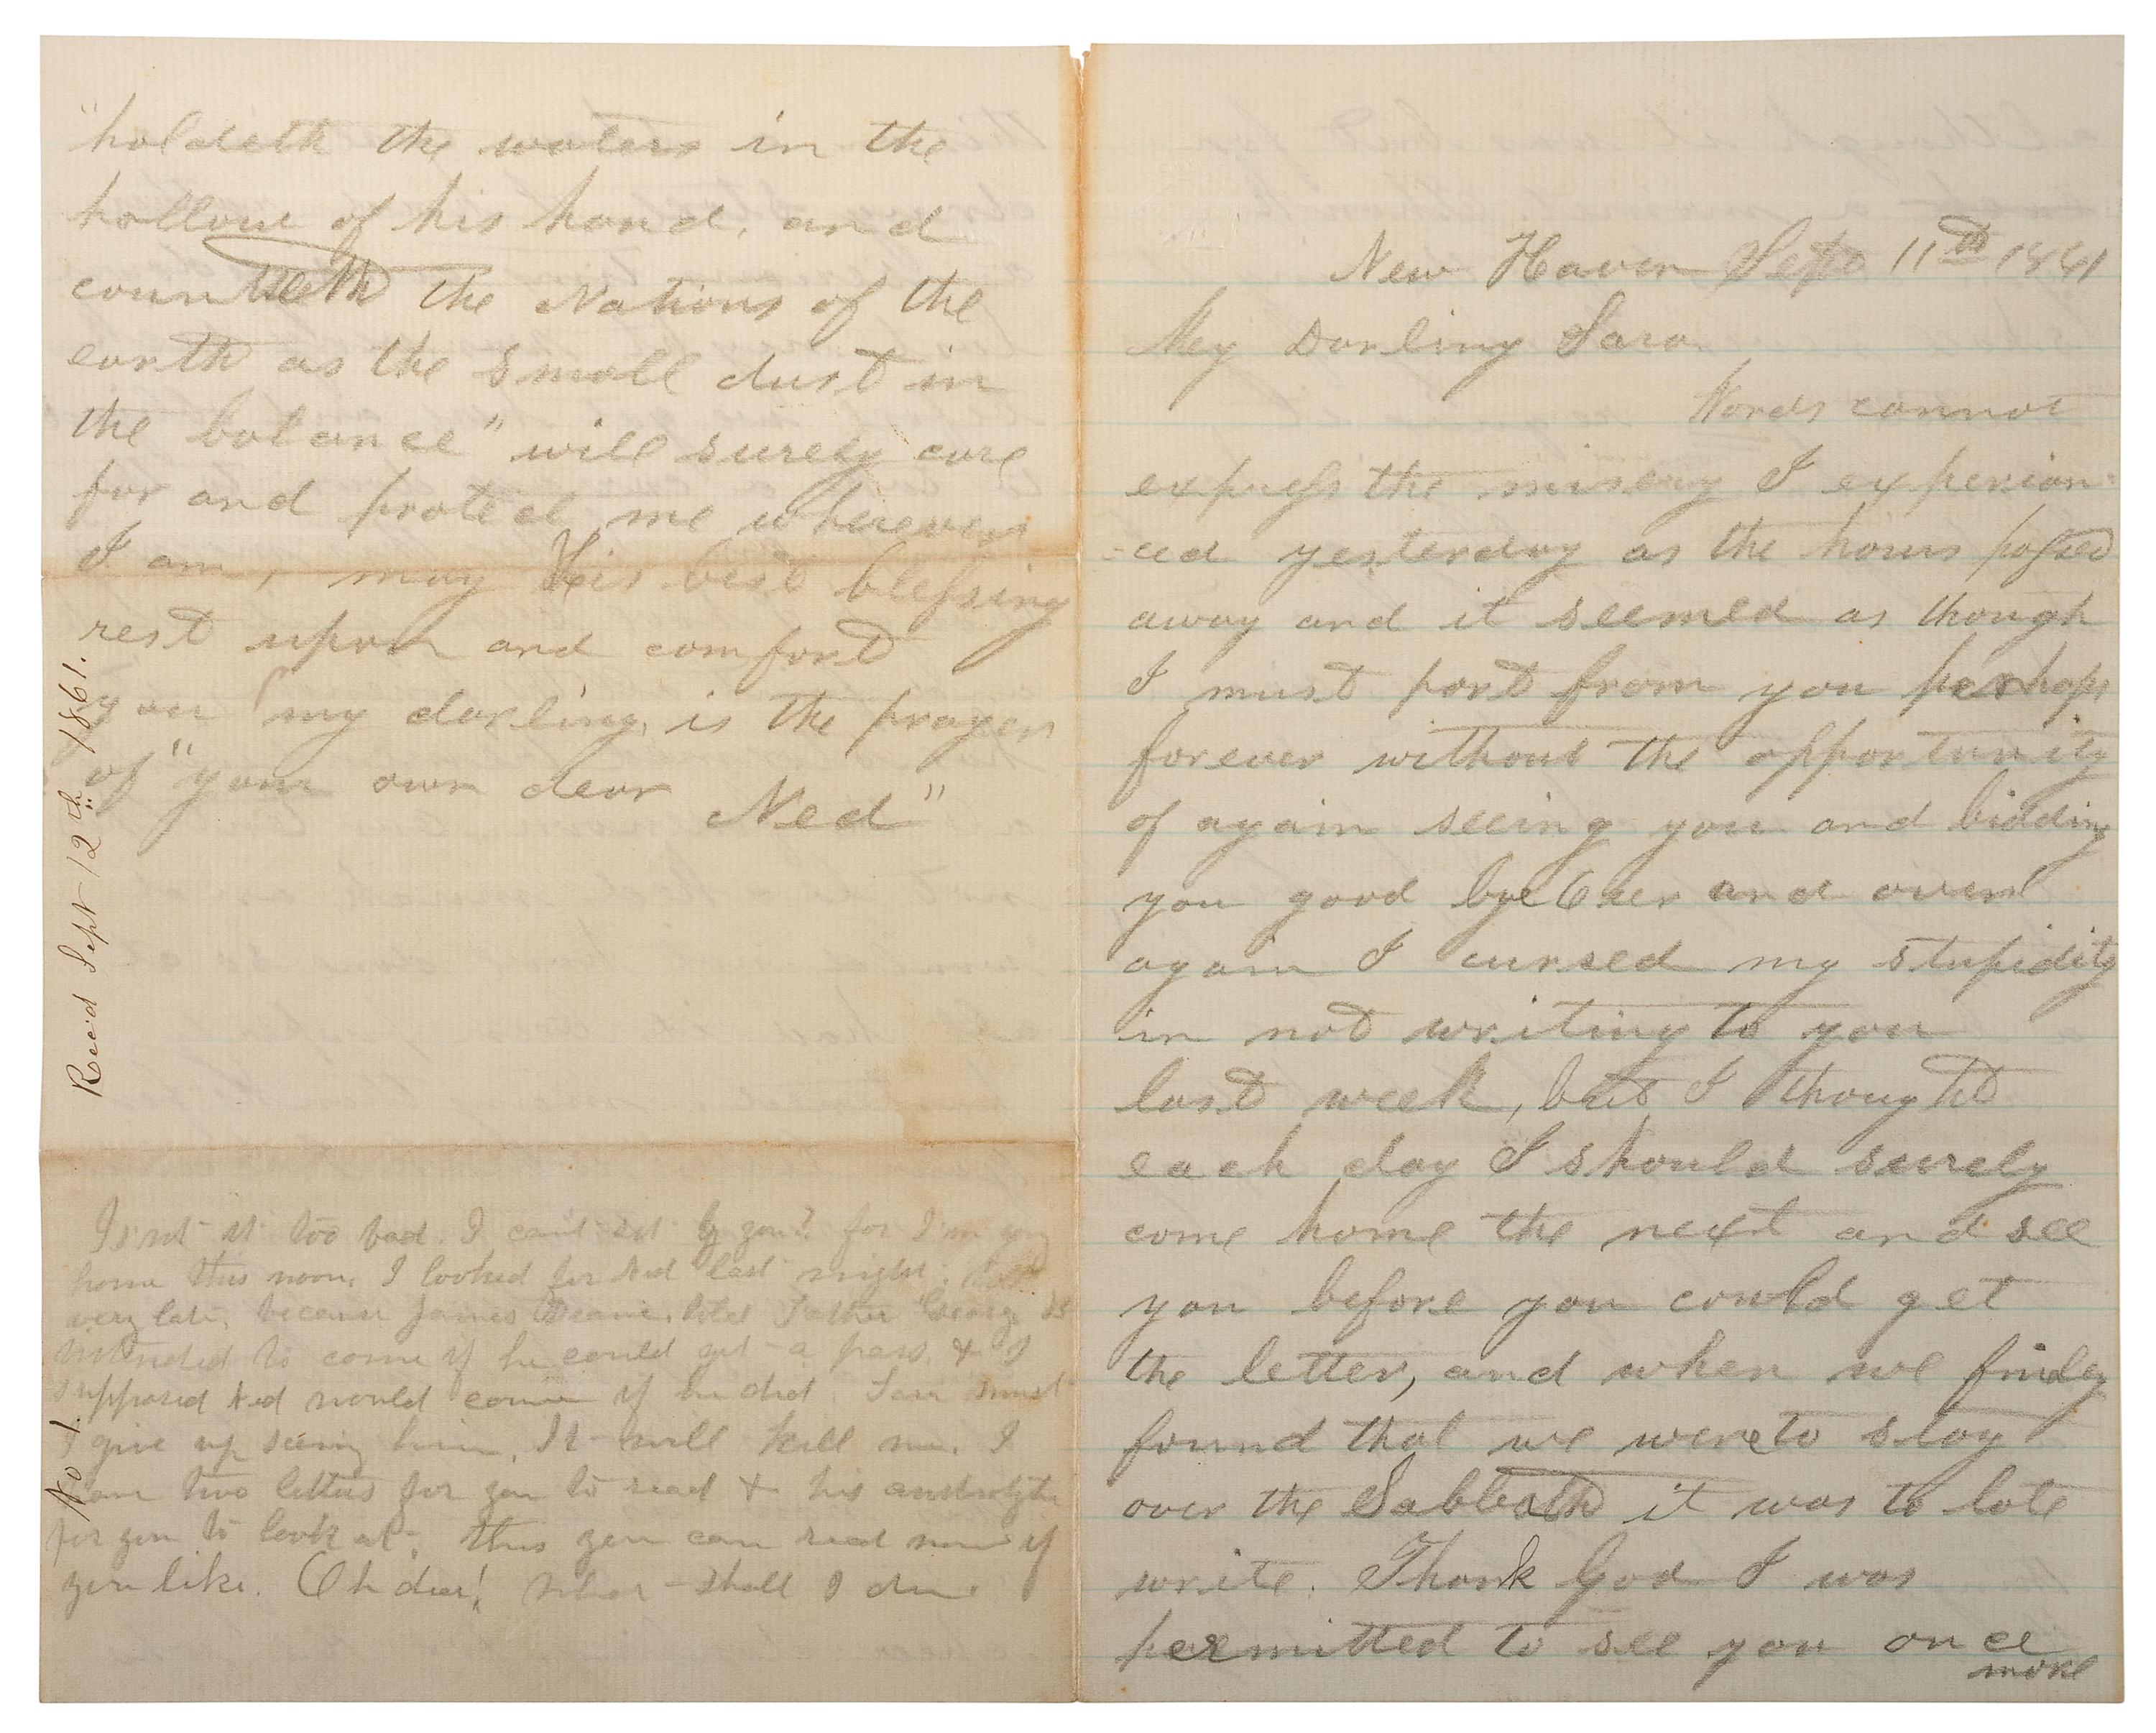 New Haven Sept 11th 1861
My Darling Sara
Words cannot
express the misery I experien-
-ced yesterday as the hours passed
away and it seemed as though
I must part from you perhaps
forever without the opportunity
of again seeing you and bidding
you good bye Over and over
again I cursed my stupidity
in not writing to you
last week, but I thought
each day I should surely
come home the next and see
you before you could get
the letter, and when we finaly
found that we were to stay
over the Sabbath it was to late
write. Thank God I was
permitted to see you once
more
"holdeth the waters in the
hollow of his hand, and
counteth the Nations of the
earth as the small dust in
the balance" will surely care
for and protect me wherever
I am, may His best blessing
rest upon and comfort
you my darling, is the prayer
of "your own dear
Ned"
Rec'd Sept 12th 1861.
No 1.
Isn't it too bad. I can't sit by you? for I'm going
home this noon. I looked for Ned last night,
very late, because James told Father George
intended to come if he could get a pass, & I
supposed Ned would come if he did. I
give up seeing him, It will kill me. I
two letters for you to read & his
for you to look at, this you can read now if
you like. Oh dear! what shall I do